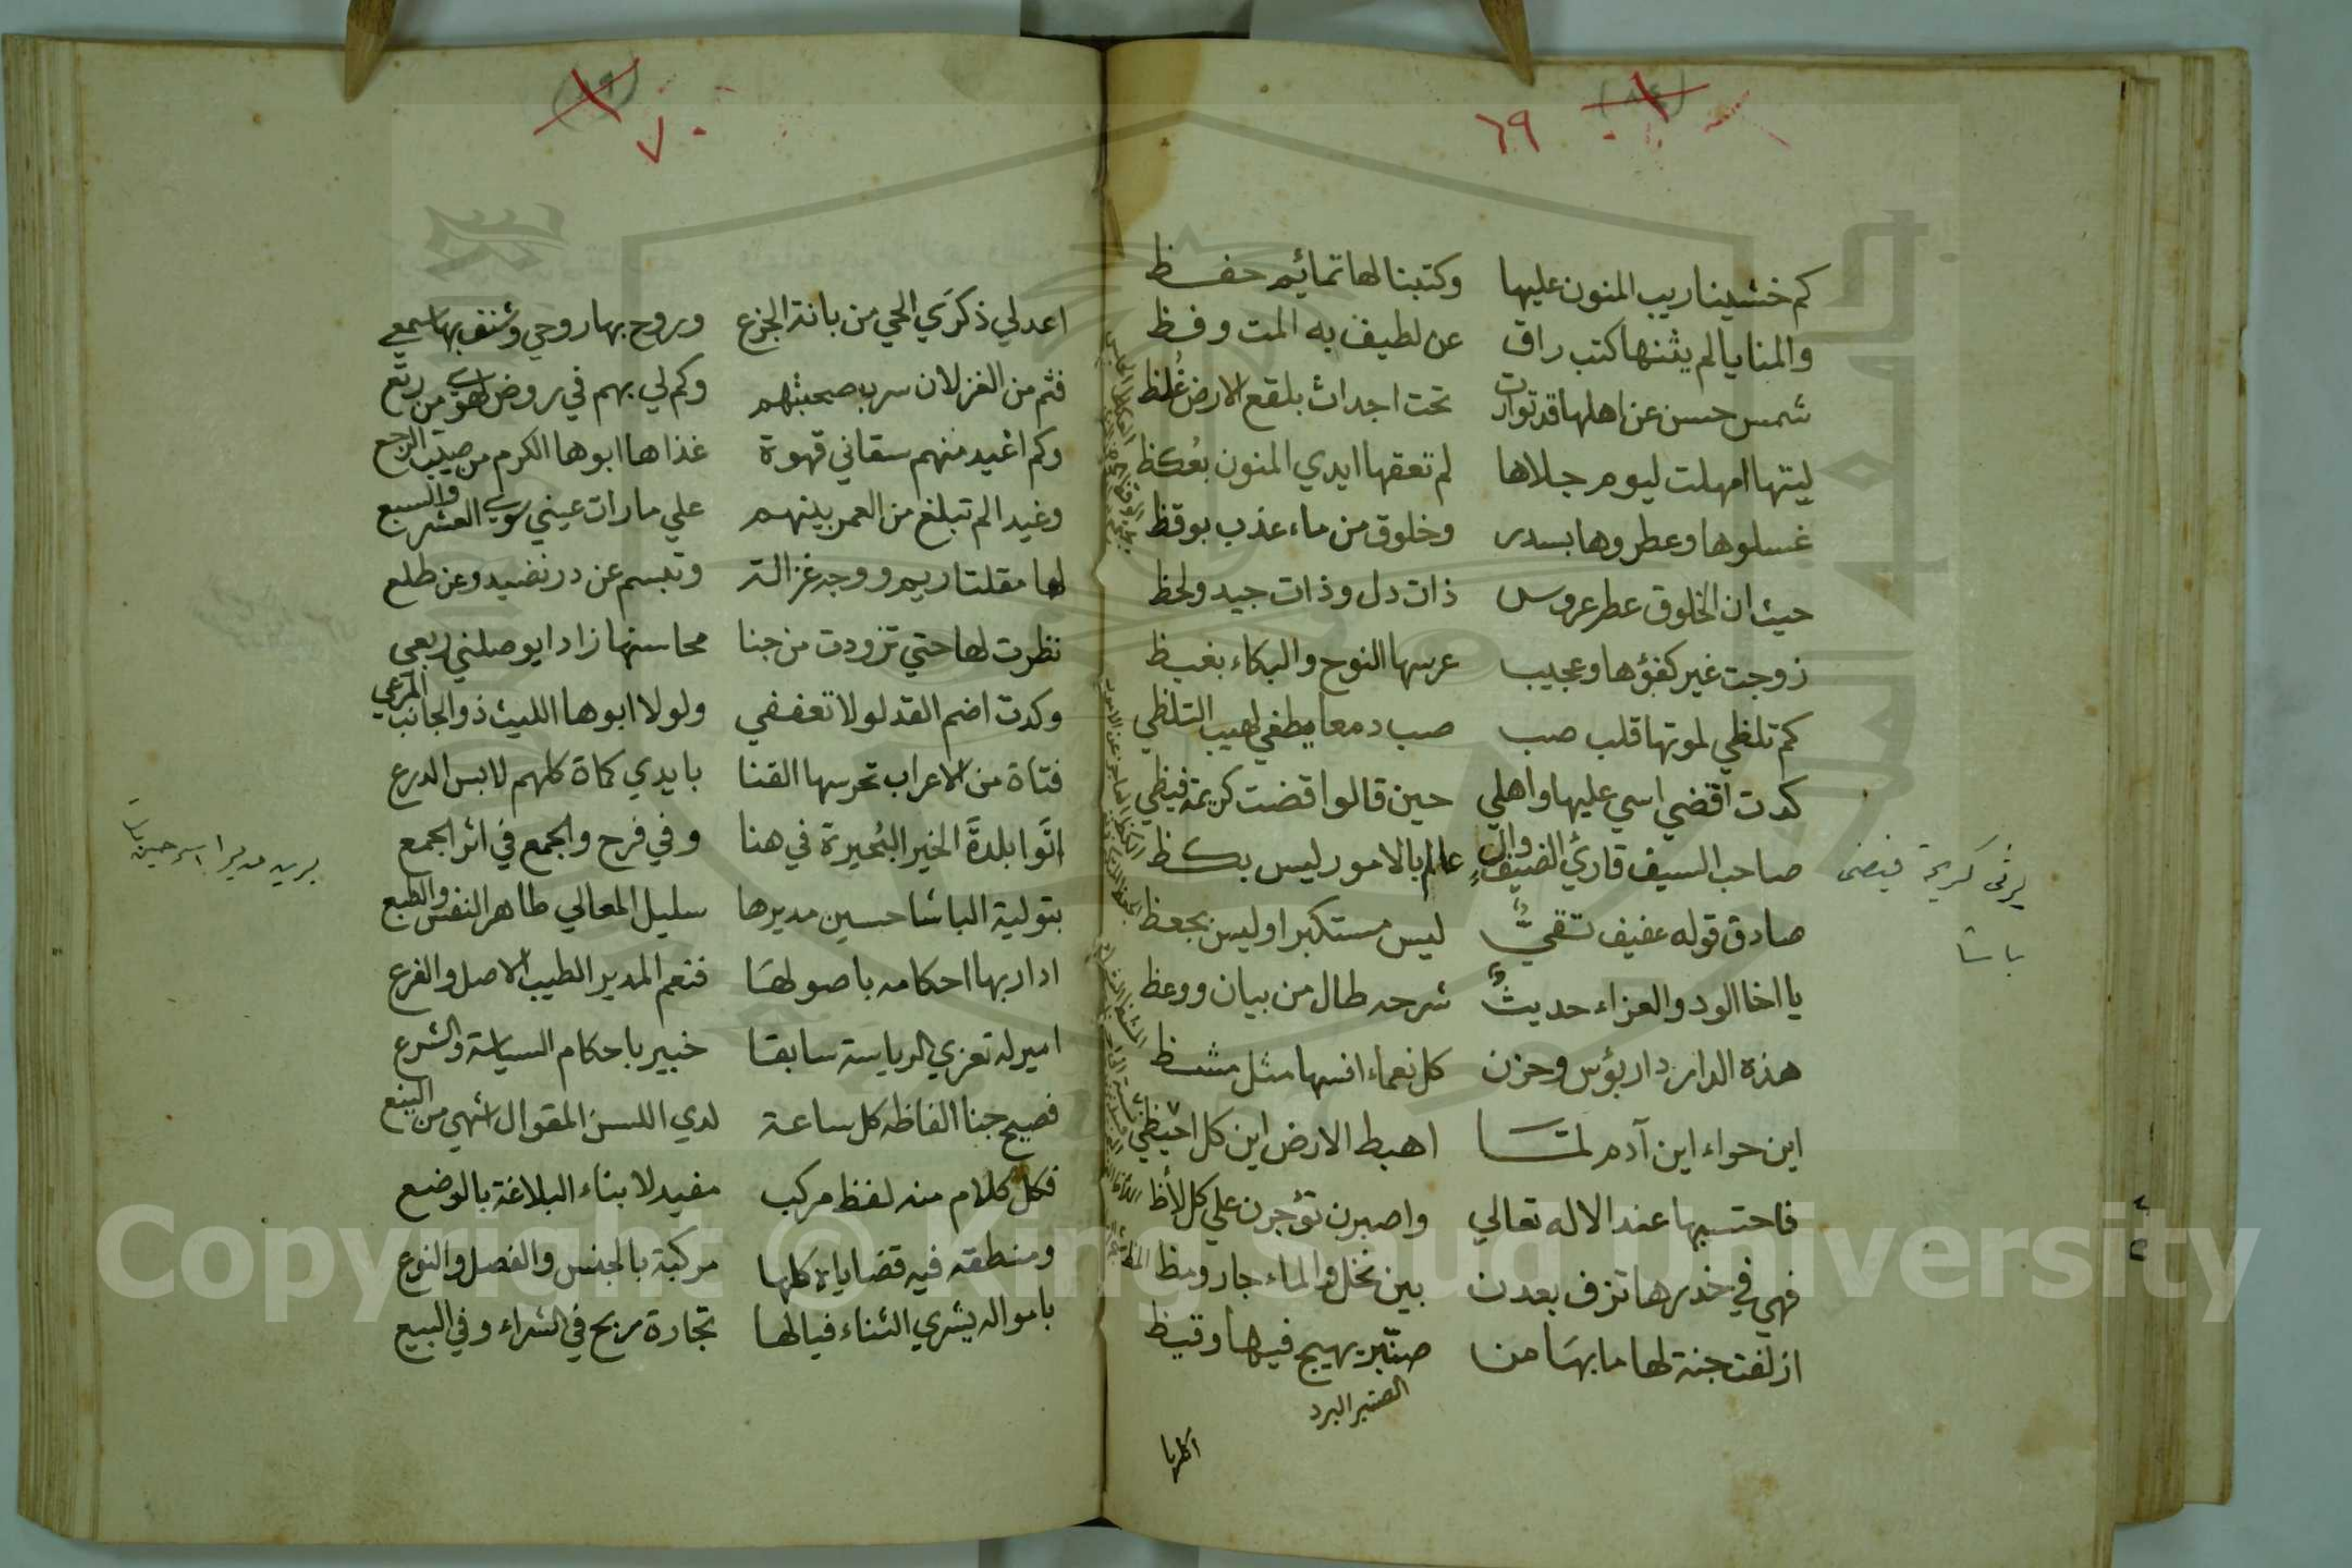 ٦٩
كم خشينا ريب المنون عليها وكتبنا لها تمائيم حفظ
والمنايا لم يثنها كتب راق عن لطيف به المت وفظ
شمس حسن عن اهلها قد توارت تحت اجداث بلقع الارض غُلظ
ليتها امهلت ليوم جلاها لم تعقها ايدي المنون بعُكظ
غسلوها وعطروها بسدر وخلوق من ماء عذب بوقظ
حيث ان الخلوق عطر عروس ذات دل وذات جيد ولحظ
زوجت غير كفؤها وعجيب عرسها النوح والبكاء بغيظ
كم تلظي لموتها قلب صب صب دمعا يطفي لهيب التلظي
كدت اقضي اسي عليها واهلي حين قالوا قضت كريمة فيظي
صاحب السيف قارئ الضيف وال عالم بالامور ليس بكظ
صادق قوله عفيف تقيٌّ ليس مستكبرا وليس بجعظ
يا اخا الود والعزاء حديثٌ شرحه طال من بيان ووعظ
هذه الدار دار بؤس وحزن كل نعماء انسها مثل مشظ
اين حواء اين آدم لمّا اهبط الارض اين كل احيظي
فاحتسبها عند الاله تعالي واصبرن تؤجرن علي كل لأظ
فهي في خدرها تزف بعدن بين نخل والماء جار ومظ
ازلفت جنة لها ما بها من صنّبر يهيج فيها وقيظ
الصنبر البرد
يرثى كريمة فيضى
باشا
٧٠
اعد لي ذكري الحي من بانة الجزع وروح بها روحي وشنف بها سمعي
فثم من الغزلان سرب صحبتهم وكم لي بهم في روض لهوي من رتع
وكم اغيد منهم سقاني قهوة غذاها ابوها الكرم من صيّب الرجع
وغيد الم تبلغ من العمر بينهم علي ما رات عيني سوي العشر والسبع
لها مقلتا ريم ووجه غزالة وتبسم عن در نضيد وعن طلع
نظرت لها حتي تزودت من جنا محاسنها زادا يوصلني ربعي
وكدت اضم القد لولا تعففي ولولا ابوها الليث ذو الجانب المرعي
فتاة من الاعراب تحرسها القنا بايدي كماة كلهم لابس الدرع
اتَوا بلدةَ الخير البُحيرة في هنا وفي فرح والجمع في اثر الجمع
بتولية الباشا حسين مديرها سليل المعالي طاهر النفس والطبع
ادار بها احكامه باصولها فنعم المدير الطيب الاصل والفرع
امير له تعزي الرياسة سابقا خبير باحكام السياسة والشرع
فصيح جنا الفاظه كل ساعة لدي اللسن المقوال اشهي من الينع
فكل كلام منه لفظ مركب مفيد لابناء البلاغة بالوضع
ومنطقه فيه قضاياه كلها مركبة بالجنس والفصل والنوع
باموالہ يشري الثناء فيالها تجارة مربح في الشراء وفي البيع
Copyright © King Saud University